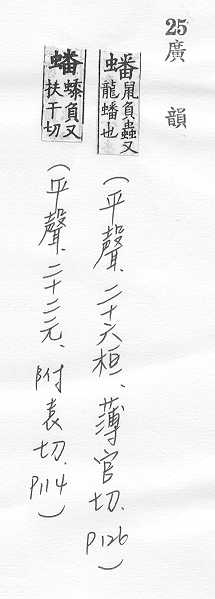 25 廣韻
蟠
鼠負蟲又
龍蟠也
(平聲、二十六桓、薄官切. P126)
蟠
負又
扶干切
(平聲、二十二元、附袁切. P114)